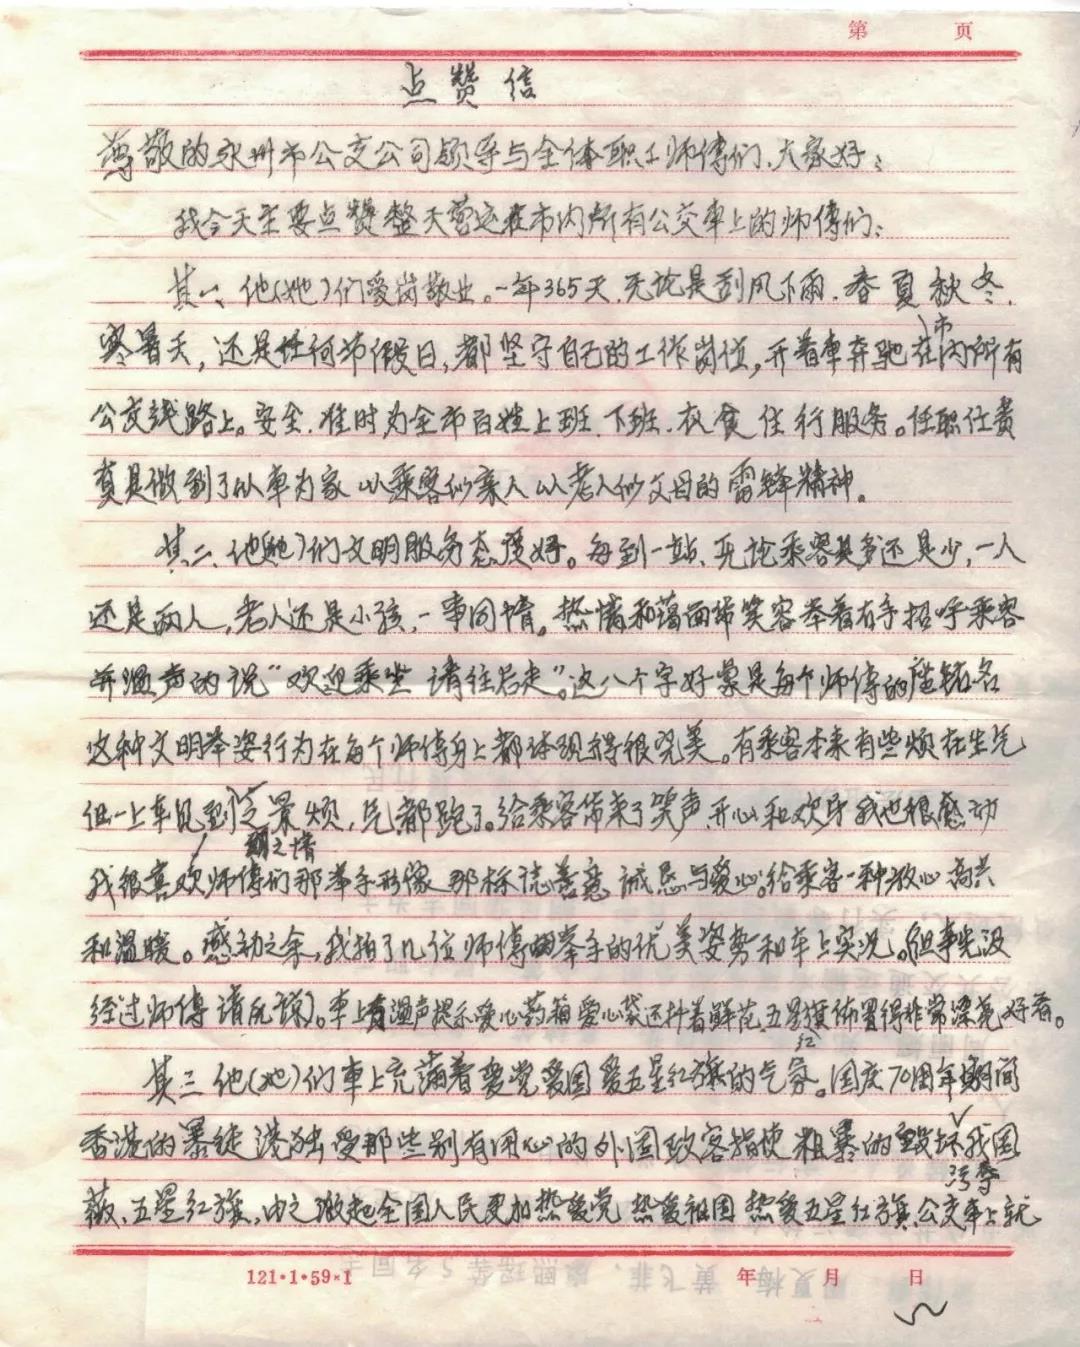 第 页
点赞信
尊敬的永州市公交公司领导与全体职工师傅们、大家好：
我今天主要点赞整天营运在市内所有公交车上的师傅们：
其一、他(她)们爱岗敬业。一年365天,无论是刮风下雨、春夏秋冬、
寒暑天,还是任何节假日,都坚守自己的工作岗位,开着车奔驰在市内所有
公交线路上。安全、准时为全市百姓上班、下班、衣食住行服务。任职任责
真是做到了以车为家 以乘客似亲人 以老人似父母的雷锋精神。
其二、他(她)们文明服务态度好。每到一站、无论乘客是多还是少,一人
还是两人,老人还是小孩,一事同情。热情和蔼面带笑容举着右手招呼乘客
并温声的说“欢迎乘坐 请往后走”。这八个字好象是每个师傅的座铭名
这种文明举姿行为在每个师傅身上都体现得很完美。有乘客本来有些烦在生气
但一上车见到这景烦,气都跑了。给乘客带来了笑声、开心和欢乐 我也很感动
之情
我很喜欢师傅们那举手形像 那标志善意 诚恳与爱心。给乘客一种放心 高兴
和温暖。感动之余,我拍了几位师傅举手的优美姿势和车上实况。(但事先没
经过师傅请允谅)。车上有温声提示爱心药箱 爱心袋还扦着鲜花,五星红旗布置得非常漂亮 好看。
其三 他(她)们车上充满着爱党 爱国 爱五星红旗的气氛。国庆70周年期间
香港的暴徒 港独受那些别有用心的外国政客指使 粗暴的毁坏污辱我国
徽、五星红旗,由之激起全国人民更加热爱党 热爱祖国 热爱五星红旗,公交车上就
121·1·59×1 年 月 日